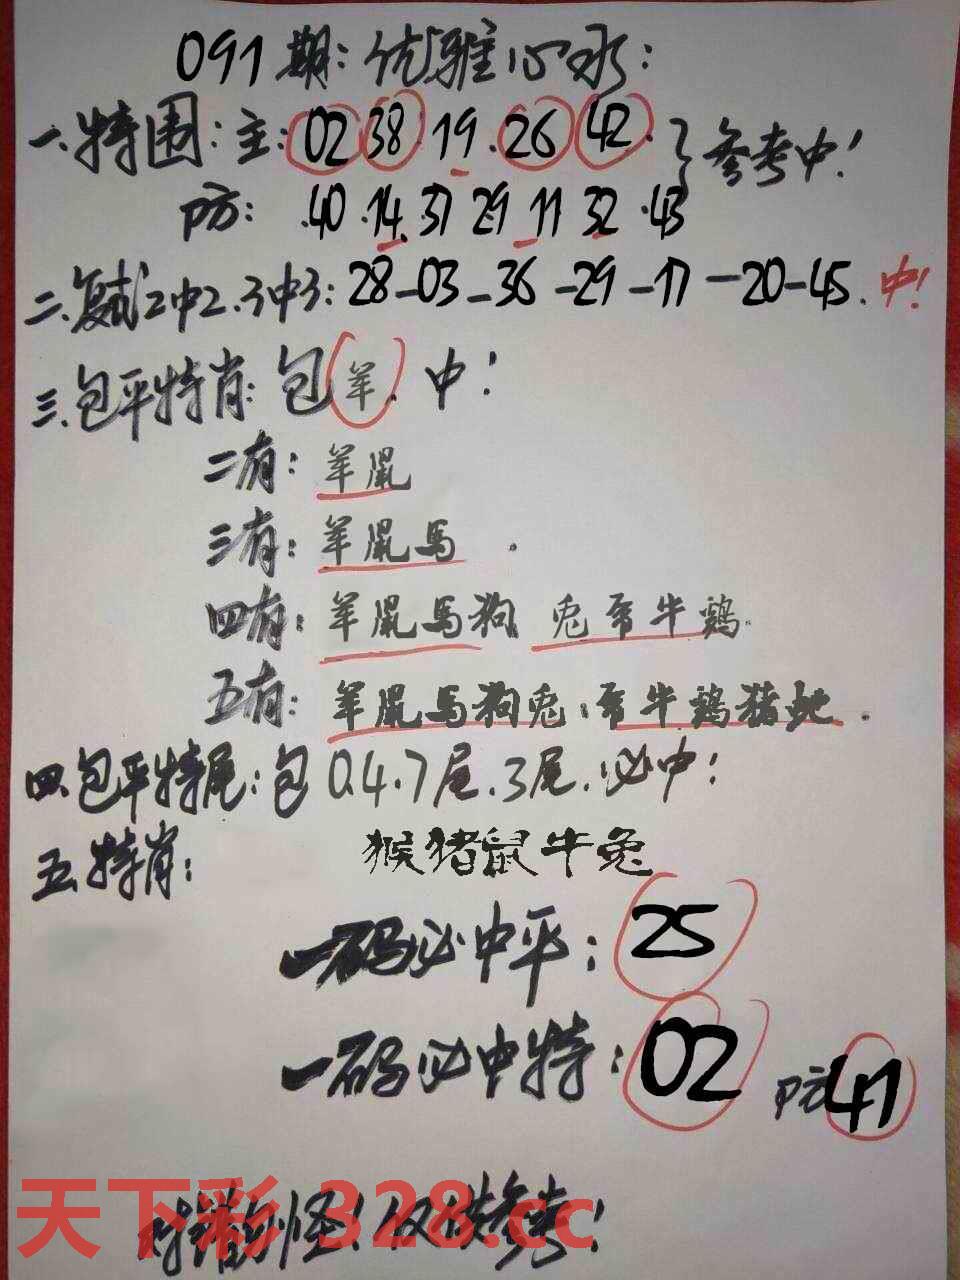 091期:优雅心水:
一.特围:主:02 38.19.26 42.}参考中!
防:.40.14.37 29 11 32.43
二.复式2中2.3中3:28-03-36-29-17-20-45.中!
三.包平特肖:包羊.中!
二有:羊鼠
三有:羊鼠馬.
四有:羊鼠馬狗 兔 牛鷄
五有:羊鼠馬狗兔: 牛鷄猪蛇.
四.包平特尾:包0.4.7尾.3尾.必中!
五.特肖: 猴猪鼠牛兔
一码必中平:25
一码必中特:02 防41
对错勿怪!仅供参考!
天下彩 328.cc